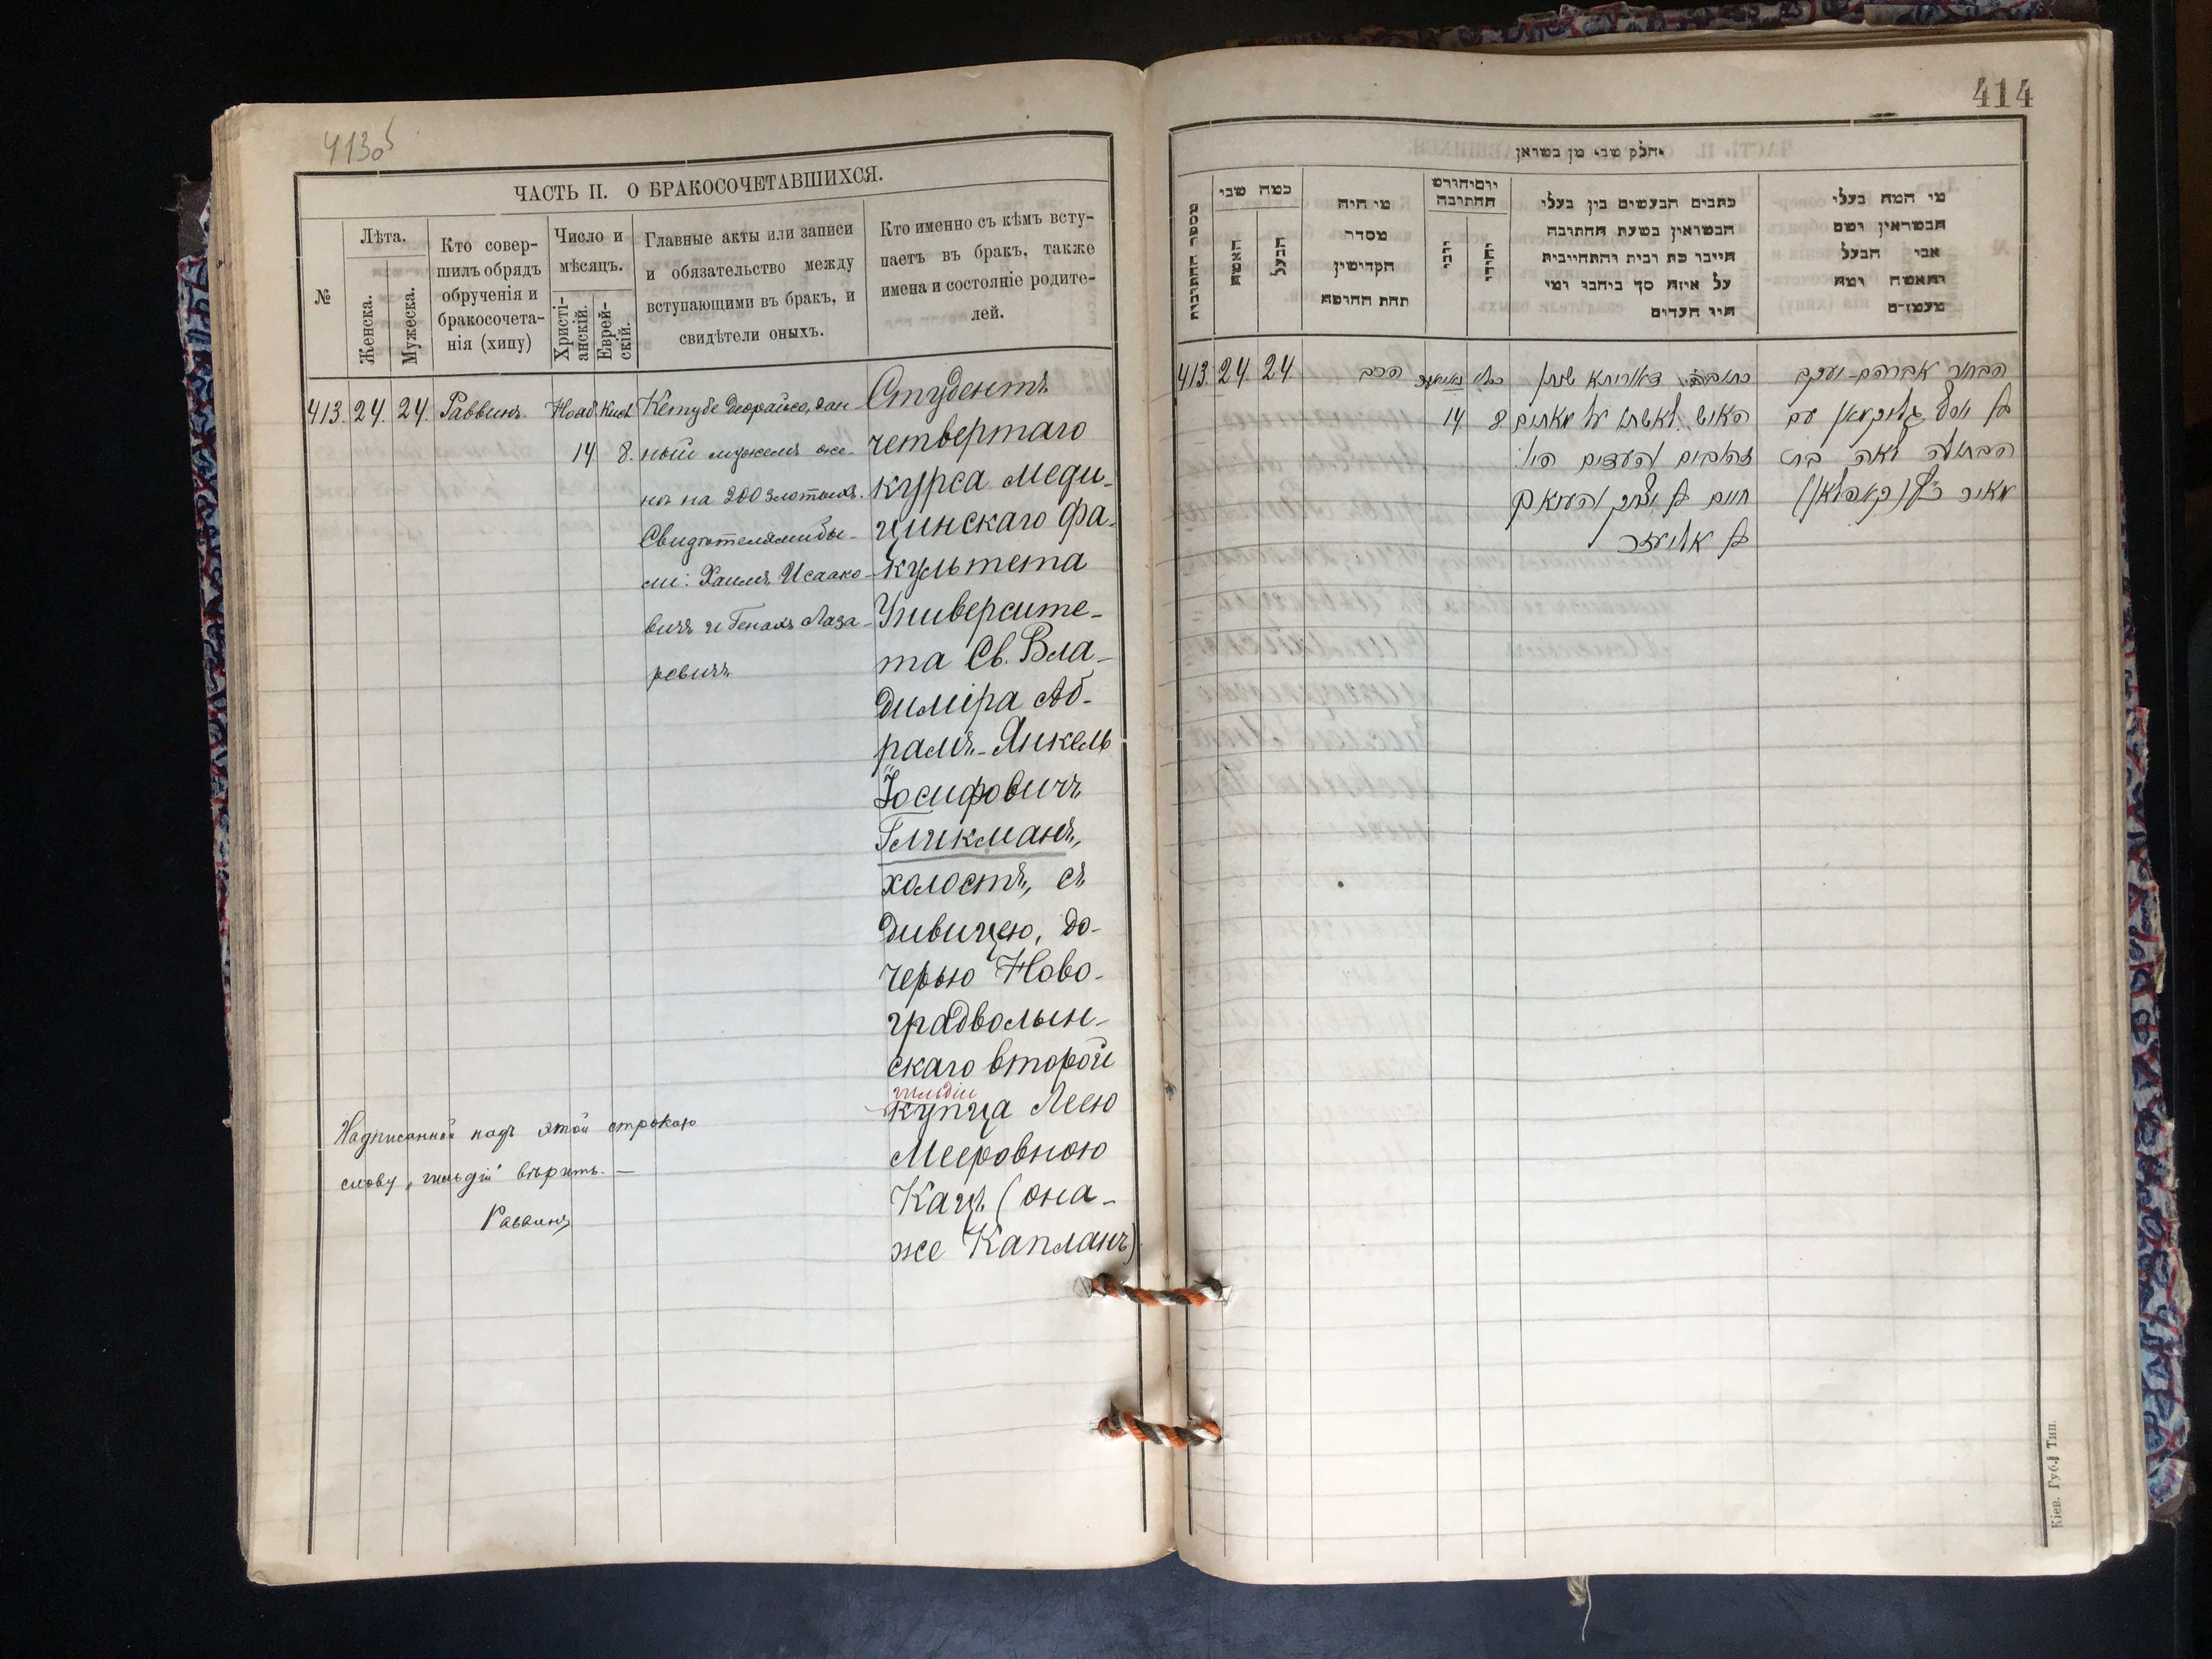 413 об
ЧАСТЬ II. О БРАКОСОЧЕТАВШИХСЯ.
№
Лѣта.
Женска.
Мужеска.
Кто совер-
шилъ обрядъ
обрученія и
бракосочета-
нія (хипу)
Число и
мѣсяцъ.
Христі-
анскій.
Еврей-
скій.
Главные акты или записи
и обязательство между
вступающими въ бракъ, и
свидѣтели оныхъ.
Кто именно съ кѣмъ всту-
паетъ въ бракъ, также
имена и состояніе родите-
лей.
413. 24. 24. Раввинъ. Нояб. Кисл.
14 8.
Кетубе Деорайсо, дан-
ный мужемъ же-
нѣ на 200 злотыхъ.
Свидѣтелями бы-
ли: Хаимъ Исаако-
вичъ и Генахъ Лаза-
ревичъ
Студентъ
четвертаго
курса меди-
цинскаго фа-
культета
Университе-
та Св. Вла-
димiра Аб-
рамъ-Янкель
Іосифовичъ
Гликманъ,
холостъ, съ
дивицею, до-
черью Ново-
градволын-
скаго второй
гильдіи
купца Леею
Мееровною
Кацъ (она-
же Капланъ)
Надписанной надъ этой строкою
слову „гильдіи" вѣрить. —
Раввинъ
414
חלק שני מן בשואין
מספר החתונות
כמה שני
האשה
הבעל
מי היה
מסדר
הקדושין
תחת החופה
יום וחודש
החתונה
נוצרי
יהודי
כתבים הנעשים בין בעלי
הנשואין בשעת החתונה
חייבו כת ובית והתחייבות
על איזה סך ביחבו ומי
היו העדים
מי המה בעלי
הנשואין ושם
אבי הבעל
והאשה ומה
מעמדם
413. 24. 24.
הרב
נאיאבר כסלו
14 8
כתובה דאוריתא שנתן
האיש לאשתו על מאתים
זהובים והעדים היו:
חיים בן יצחק והענאך
בן אליעזר
הבחור אברהם-יעקב
בן יוסף גליקמאן עם
הבתולה לאה בת
מאיר כ"ץ (קאפלאן)
Кіев. Губ. Тип.